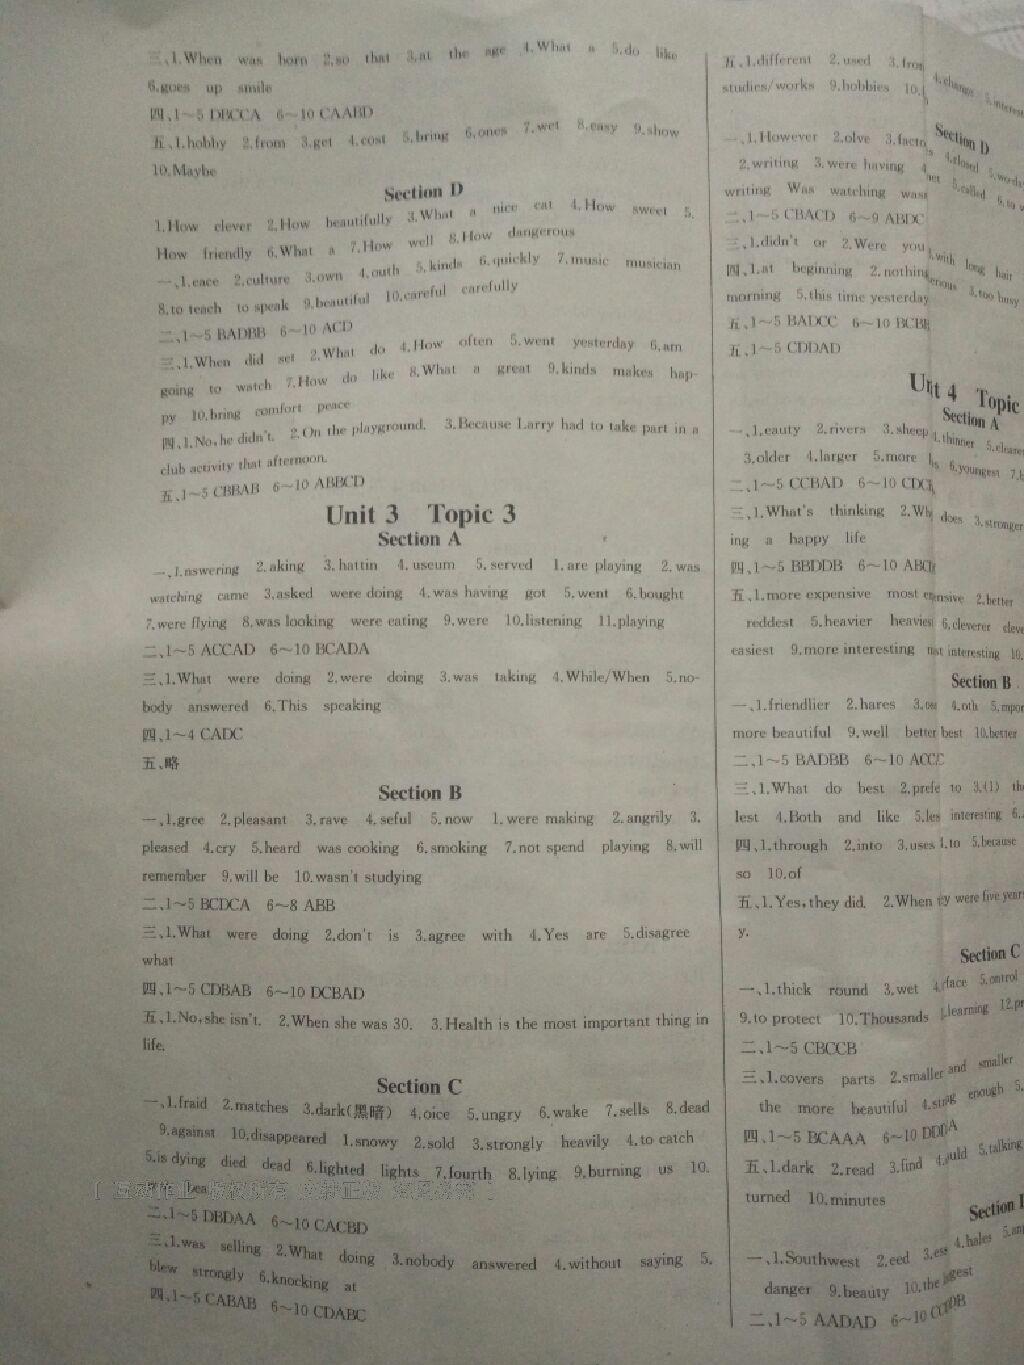 三、1.When was born 2.so that 3.at the age 4.What a 5.do like
6.goes up smile
四、1～5 DBCCA 6～10 CAABD
五、1.hobby 2.from 3.get 4.cost 5.bring 6.ones 7.wet 8.easy 9.show
10.Maybe
Section D
1.How clever 2.How beautifully 3.What a nice cat 4.How sweet 5.
How friendly 6.What a 7.How well 8.How dangerous
一、1.eace 2.culture 3.own 4.outh 5.kinds 6.quickly 7.music musician
8.to teach to speak 9.beautiful 10.careful carefully
二、1～5 BADBB 6～10 ACD
三、1.When did set 2.What do 4.How often 5.went yesterday 6.am
going to watch 7.How do like 8.What a great 9.kinds makes hap-
py 10.bring comfort peace
四、1.No,he didn't. 2.On the playground. 3.Because Larry had to take part in a
club activity that afternoon.
五、1～5 CBBAB 6～10 ABBCD
Unit 3 Topic 3
Section A
一、1.nswering 2.aking 3.hattin 4.useum 5.served 1.are playing 2.was
watching came 3.asked were doing 4.was having got 5.went 6.bought
7.were flying 8.was looking were eating 9.were 10.listening 11.playing
二、1～5 ACCAD 6～10 BCADA
三、1.What were doing 2.were doing 3.was taking 4.While/When 5.no-
body answered 6.This speaking
四、1～4 CADC
五、略
Section B
一、1.gree 2.pleasant 3.rave 4.seful 5.now 1.were making 2.angrily 3.
pleased 4.cry 5.heard was cooking 6.smoking 7.not spend playing 8.will
remember 9.will be 10.wasn't studying
二、1～5 BCDCA 6～8 ABB
三、1.What were doing 2.don't is 3.agree with 4.Yes are 5.disagree
what
四、1～5 CDBAB 6～10 DCBAD
五、1.No,she isn't. 2.When she was 30. 3.Health is the most important thing in
life.
Section C
一、1.fraid 2.matches 3.dark(黑暗) 4.oice 5.ungry 6.wake 7.sells 8.dead
9.against 10.disappeared 1.snowy 2.sold 3.strongly heavily 4.to catch
5.is dying died dead 6.lighted lights 7.fourth 8.lying 9.burning us 10.
二、1～5 DBDAA 6～10 CACBD
三、1.was selling 2.What doing 3.nobody answered 4.without saying 5.
blew strongly 6.knocking at
四、1～5 CABAB 6～10 CDABC
五、1.different 2.used 3.from 4.change 5.interest
studies/works 9.hobbies 10.
Section D
一、1.However 2.olve 3.facto 4.closed 5.words
2.writing 3.were having 5.called
writing Was watching was
二、1～5 CBACD 6～9 ABDC
三、1.didn't or 2.Were you with long hair
四、1.at beginning 2.nothing 3.too busy
morning 5.this time yesterday
五、1～5 BADCC 6～10 BCBB
五、1～5 CDDAD
Unit 4 Topic
Section A
一、1.eauty 2.rivers 3.sheep 4.thinner 5.cleaner
3.older 4.larger 5.more 6.youngest
二、1～5 CCBAD 6～10 CDCB
三、1.What's thinking 2.Wh does 3.stronger
ing a happy life
四、1～5 BBDDB 6～10 ABCD
五、1.more expensive most expensive 2.better
reddest 5.heavier heaviest 6.cleverer cleve
easiest 9.more interesting most interesting 10.
Section B
一、1.friendlier 2.hares 4.oth 5.mpor
more beautiful 9.well better best 10.better
二、1～5 BADBB 6～10 ACCC
三、1.What do best 2.prefe to 3.(1) the
lest 4.Both and like 5.less interesting 6.
四、1.through 2.into 3.uses 4.to 5.because
so 10.of
五、1.Yes,they did. 2.When they were five years
y.
Section C
一、1.thick round 3.wet 4.rface 5.ontrol
9.to protect 10.Thousands learning 12.pr
二、1～5 CBCCB
三、1.covers parts 2.smaller and smaller
the more beautiful 4.strong enough 5.
四、1～5 BCAAA 6～10 DDDA
五、1.dark 2.read 3.find 4.ould 5.talking
turned 10.minutes
Section D
一、1.Southwest 2.eed 3.ess 4.hales 5.an
danger 9.beauty 10.the largest
二、1～5 AADAD 6～10